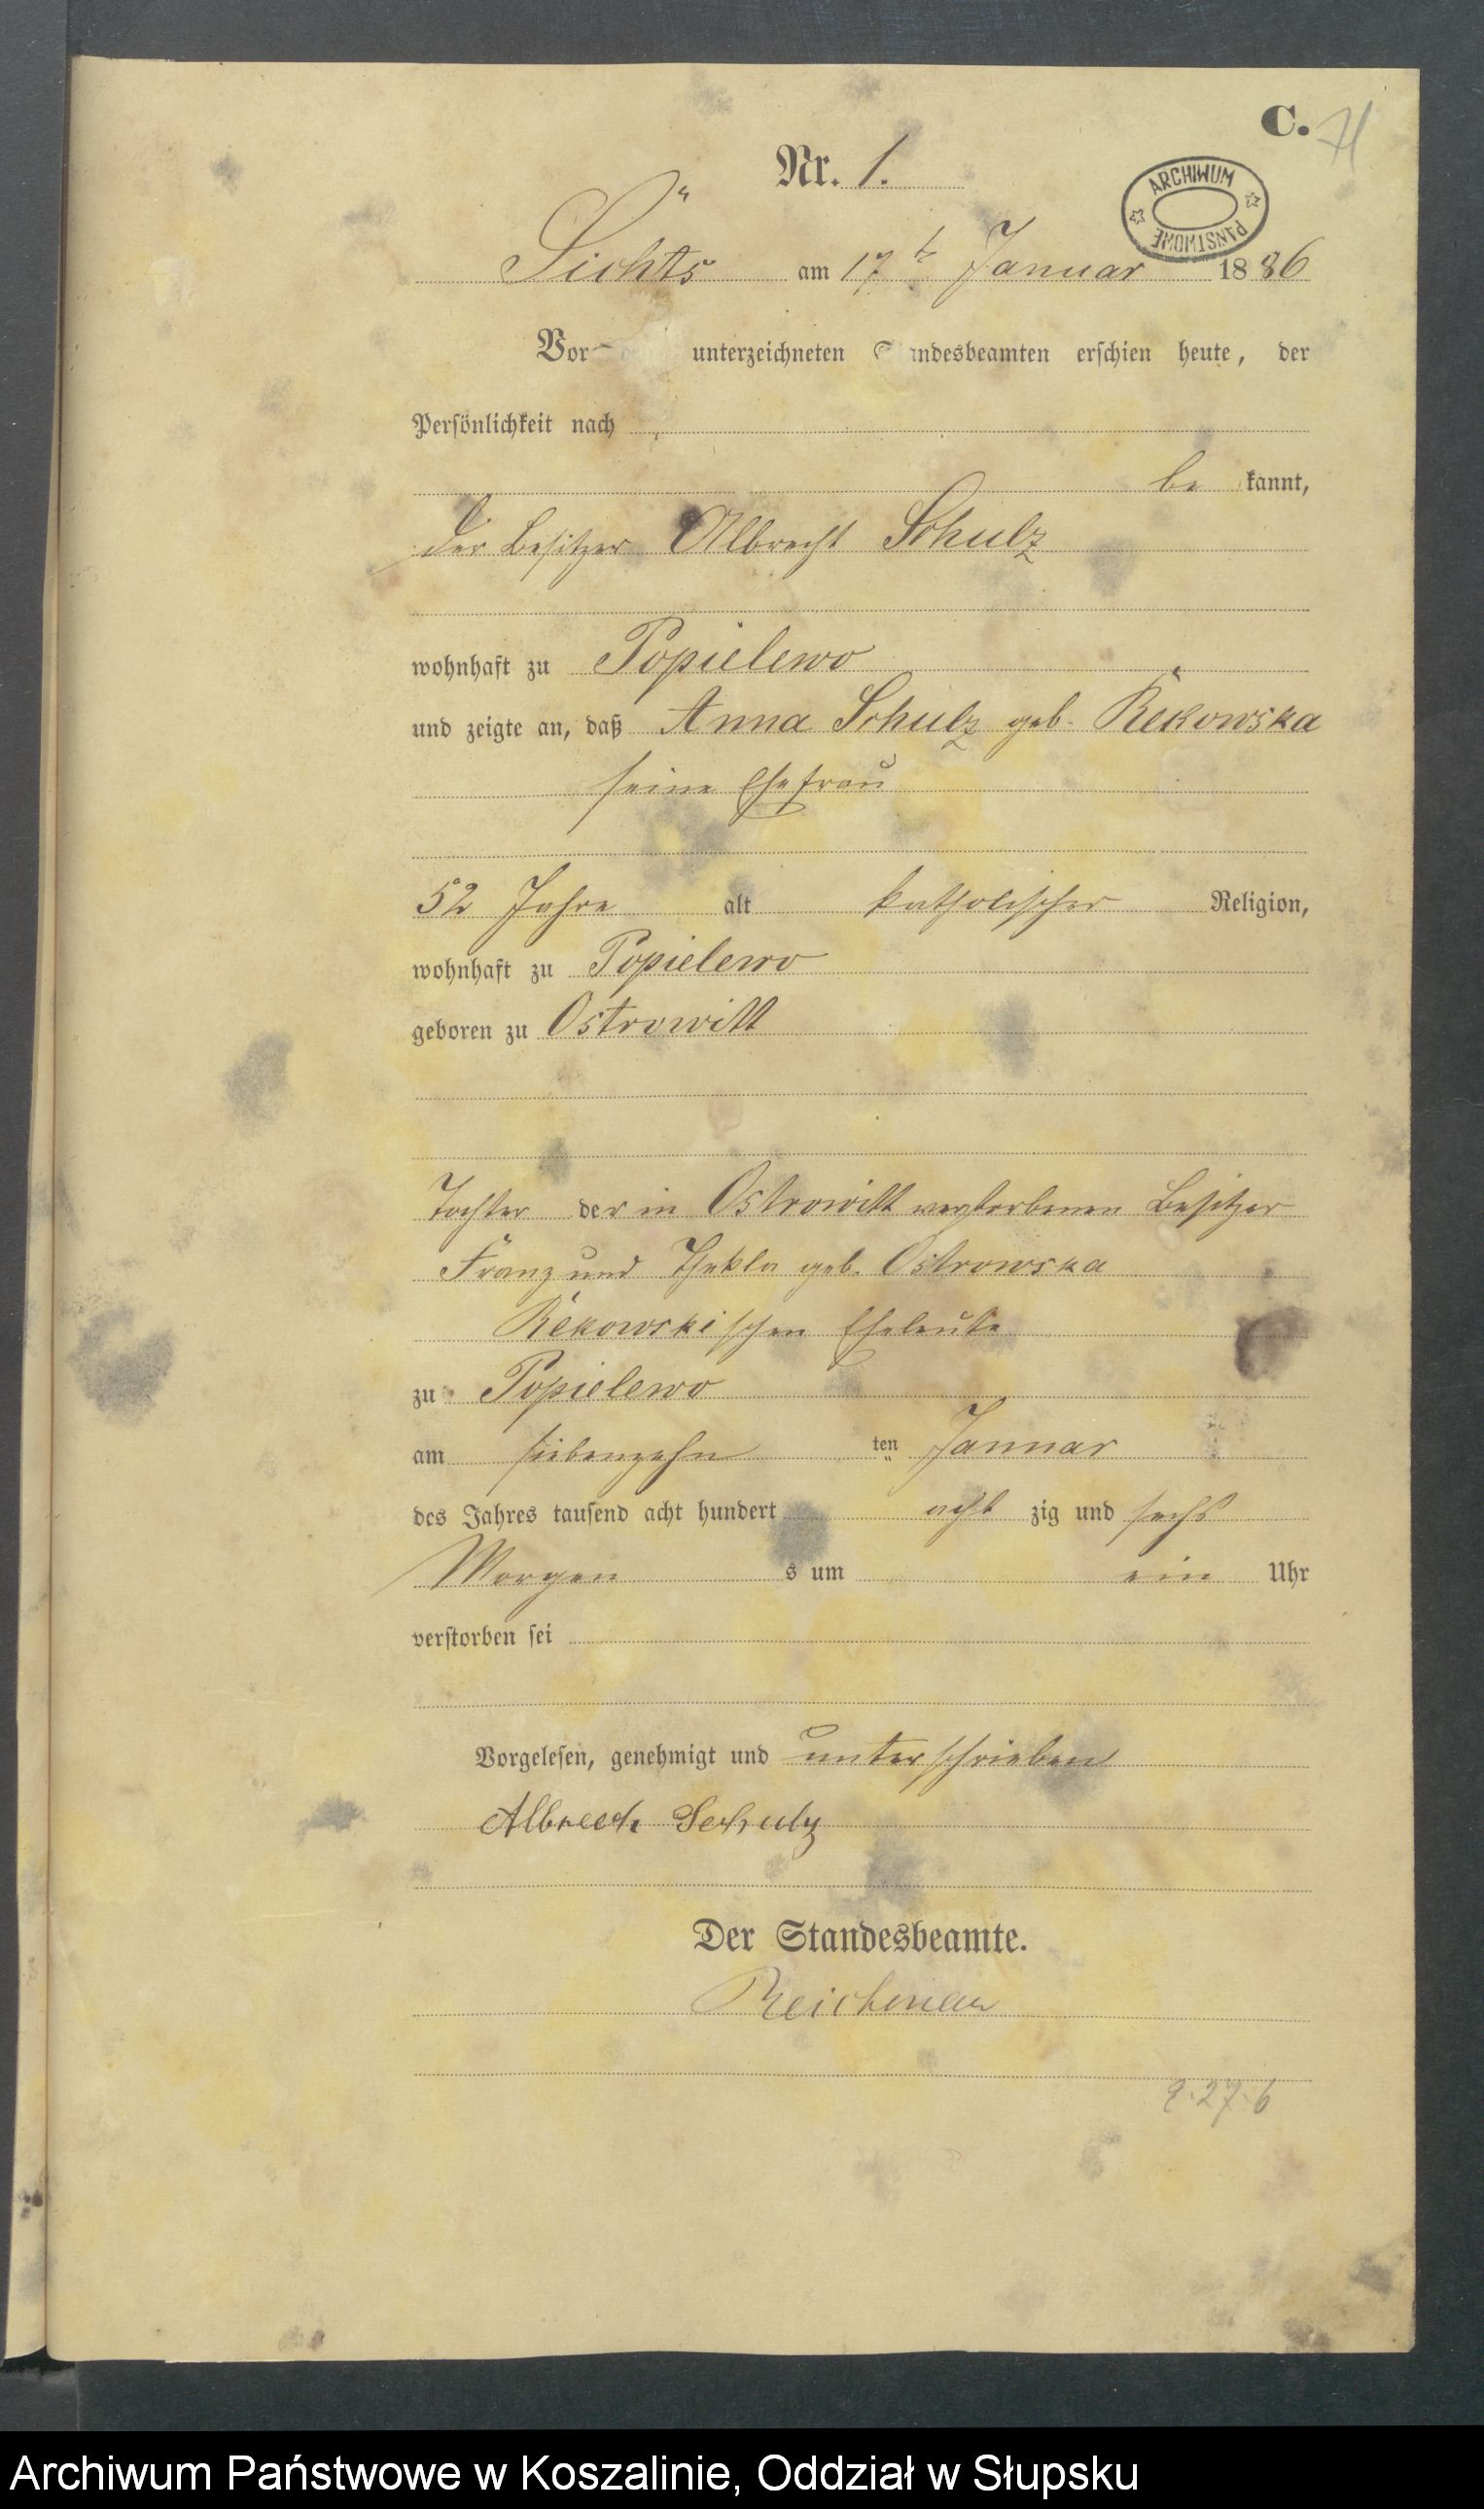 C. 71
Nr. 1.
ARCHIWUM PAŃSTWOWE
Lichts am 17t Januar 1886
Vor unterzeichneten Standesbeamten erschien heute, der
Persönlichkeit nach
be kannt,
der Besitzer Albrecht Schulz
wohnhaft zu Popielewo
und zeigte an, daß Anna Schulz geb. Rekowska
seine Ehefrau
52 Jahre alt katholischer Religion,
wohnhaft zu Popielewo
geboren zu Ostrowitt
Tochter der in Ostrowitt verstorbenen Besitzer
Franz und Thekla geb. Ostrowska
Rekowskischen Eheleute
zu Popielewo
am siebenzehn ten Januar
des Jahres tausend acht hundert acht zig und sechs
Morgen s um ein Uhr
verstorben sei
Vorgelesen, genehmigt und unterschrieben
Albrech Schulz
Der Standesbeamte.
9.27.6
Archiwum Państwowe w Koszalinie, Oddział w Słupsku